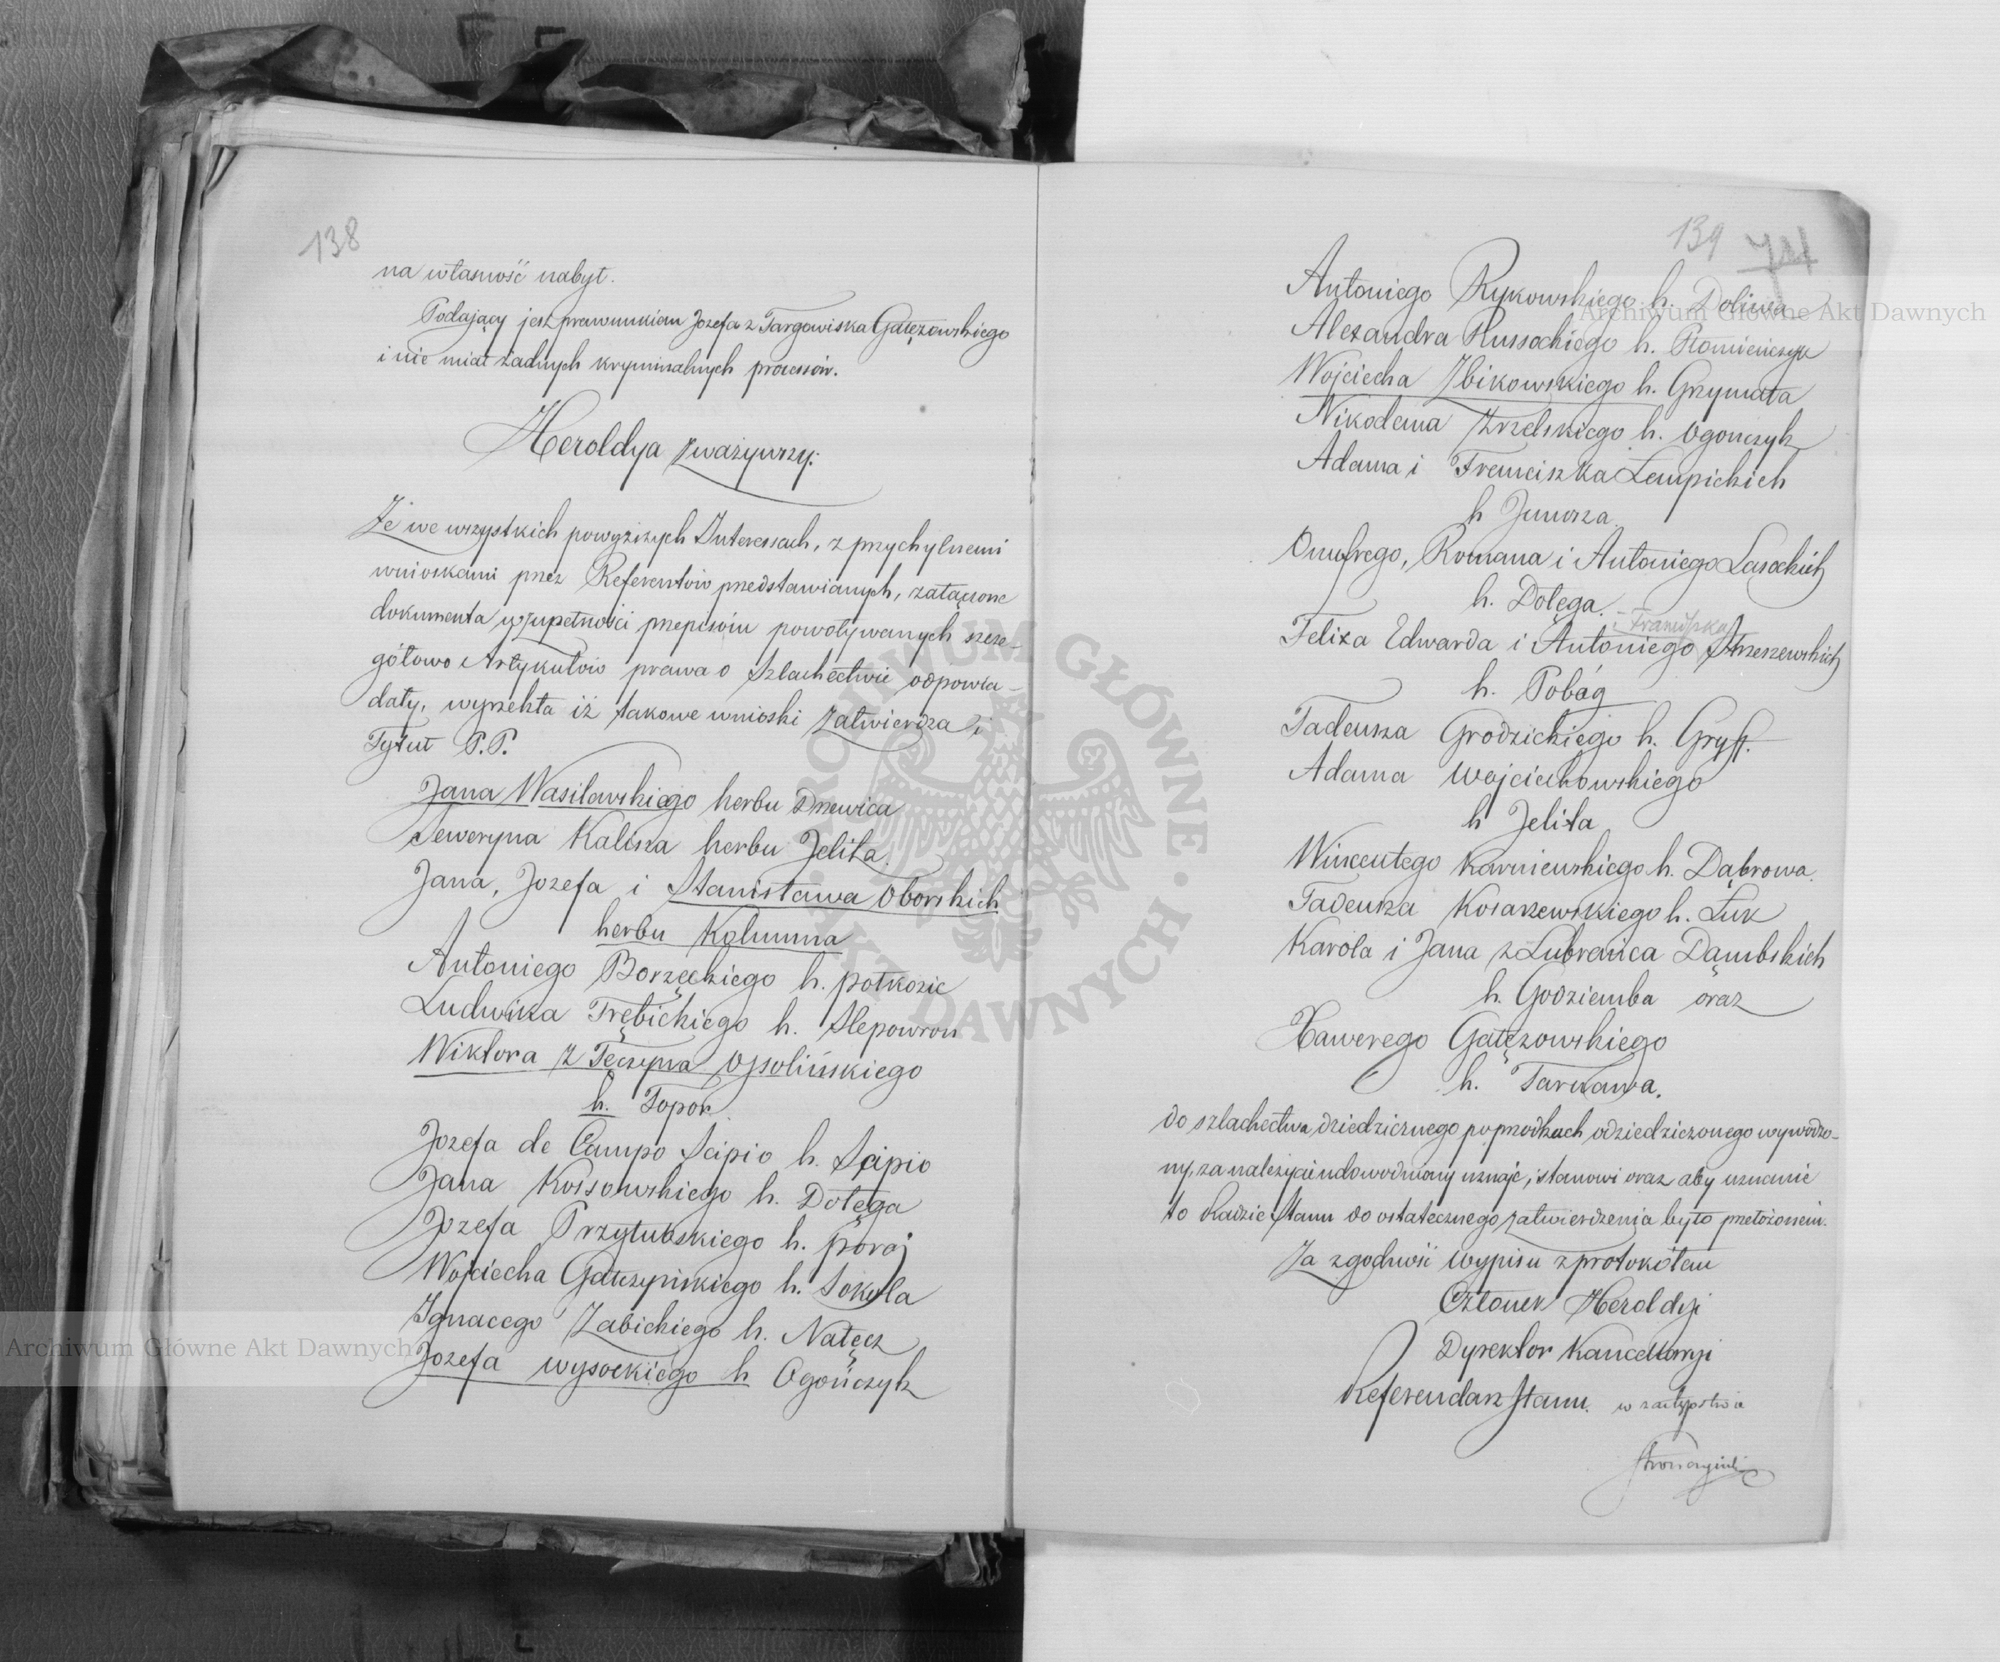 138
na własność nabył.
Podający jest prawnukiem Jozefa z Targowiska Gałęzowskiego
i nie miał żadnych kryminalnych processów.
Heroldya zważywszy:
Że we wszystkich powyższych Interessach, z przychylnemi
wnioskami przez Referentów przedstawianych, załączone
dokumenta w zupełności przepisom powoływanych szcze-
gółowo Artykułów prawa o Szlachectwie odpowia-
dały, wyrzekła iż takowe wnioski zatwierdza i
Tytuł P.P.
Jana Wasilawskiego herbu Drzewica
Seweryna Kalisza herbu Jelita.
Jana, Jozefa i Stanisława Oborskich
herbu Kolumna
Antoniego Borzęckiego h. połkozic
Ludwika Trębickiego h. Slepowron
Wiktora z Tęczyna Ossolińskiego
h. Topor
Jozefa de Campo Scipio h. Scipio
Jana Kossowskiego h. Dołęga
Jozefa Przyłubskiego h. poraj
Wojciecha Gałczyńskiego h. Sokola
Ignacego Zabickiego h. Nałęcz
Jozefa wysockiego h Ogończyk
139 74
Antoniego Rykowskiego h. Doliwa
Alexandra Russockiego h. Płomieńczyk
Wojciecha Zbikowskiego h. Grzymała
Nikodema Krzelskiego h. Ogończyk
Adama i Franciszka Łempickich
h Junosza
Onufrego, Romana i Antoniego Lasockich
h. Dołęga.
i Franciszka
Felixa Edwarda i Antoniego Strzeszewskich
h. Pobóg
Tadeusza Grodzickiego h. Gryff.
Adama Wojciechowskiego
h Jelita
Wincentego Karniewskiego h. Dąbrowa.
Tadeusza Kosarzewskiego h. Łuk
Karola i Jana z Lubrańca Dąmbskich
h. Godziemba oraz
Xawerego Gałęzowskiego
h. Tarnawa.
do szlachectwa dziedzicznego po przodkach odziedziczonego wywodzo-
ny, za należycie udowodniony uznaje, i stanowi oraz aby uznanie
to Radzie Stanu do ostatecznego zatwierdzenia było przełożonem.
Za zgodność wypisu z protokółem
Członek Heroldyi
Dyrektor Kancellaryi
Referendarz Stanu. w zastępstwie
Stronczyński
Archiwum Główne Akt Dawnych
Archiwum Główne Akt Dawnych
ARCHIWUM GŁÓWNE · AKT DAWNYCH ·